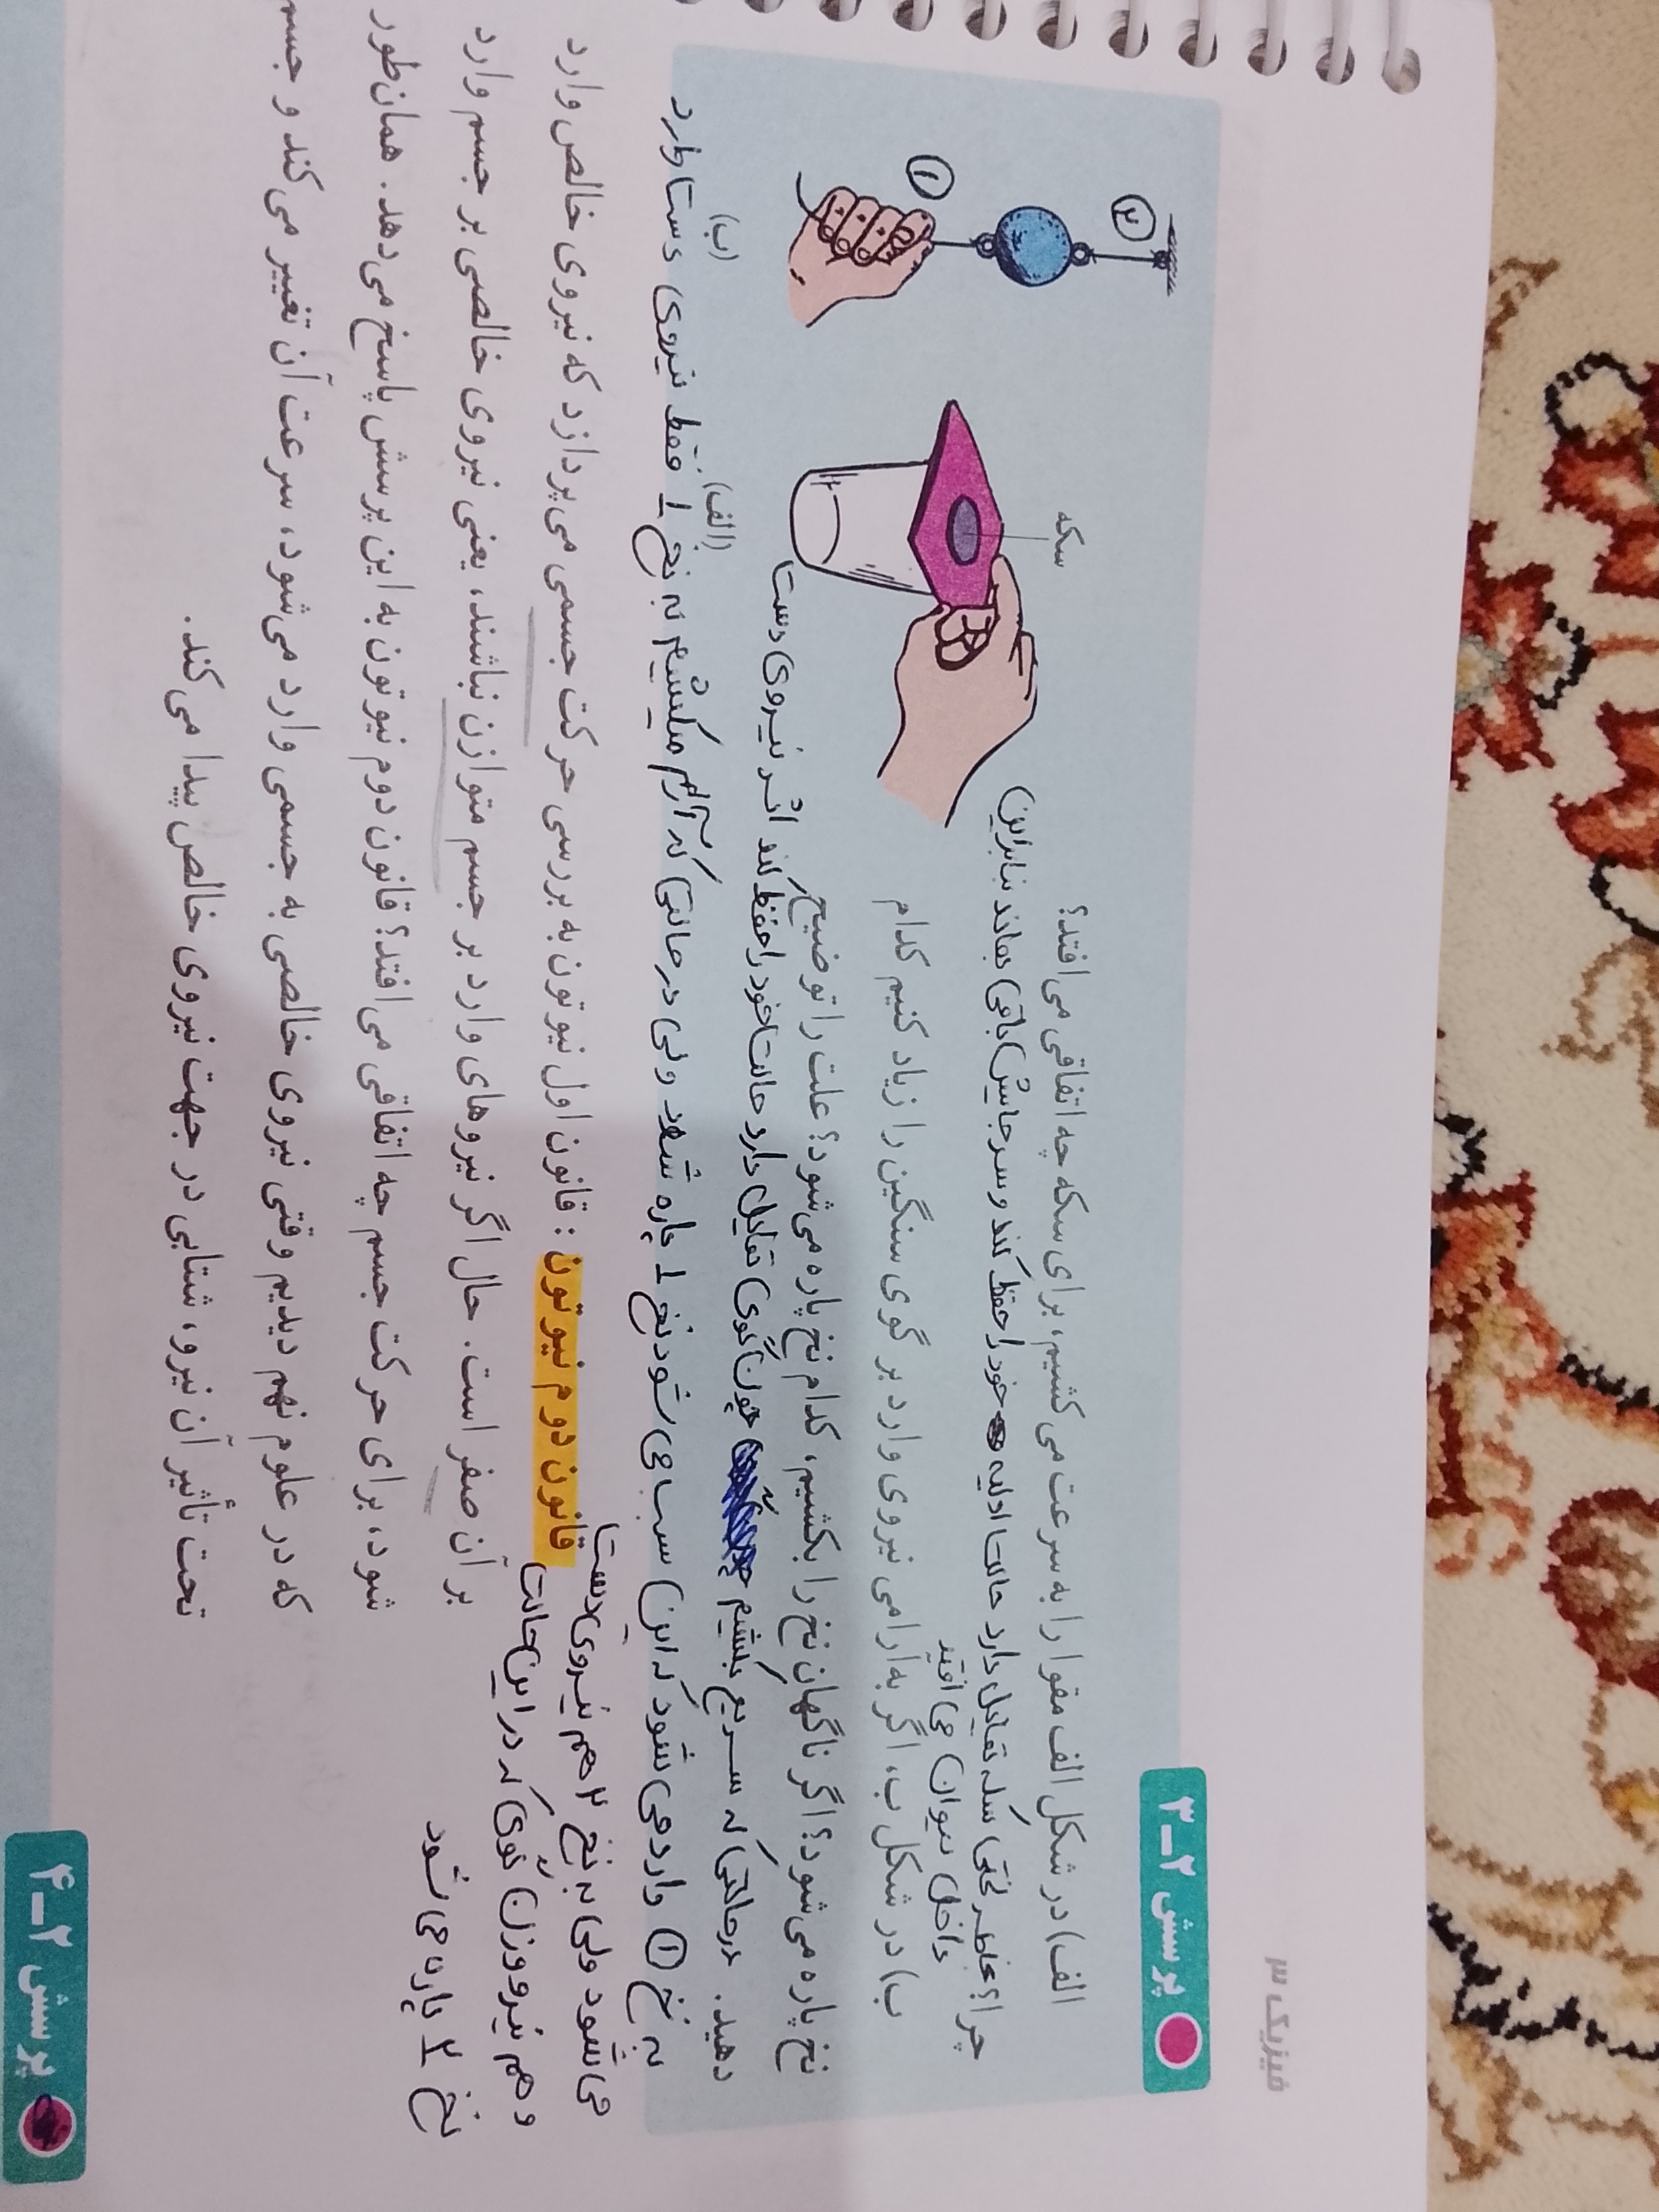 فیزیک ۳
پرسش ۲-۳
الف) در شکل الف مقوا را به سرعت می‌کشیم، برای سکه چه اتفاقی می‌افتد؟
چرا؟ بخاطر لختی سکه تمایل دارد حالت اولیه خود را حفظ کند و سر جایش باقی بماند بنابراین
داخل لیوان می افتد
ب) در شکل ب، اگر به آرامی نیروی وارد بر گوی سنگین را زیاد کنیم کدام
نخ پاره می‌شود؟ اگر ناگهان نخ را بکشیم، کدام نخ پاره می‌شود؟ علت را توضیح
دهید. درحالتی که سریع بکشیم چون گوی تمایل دارد حالت خود را حفظ کند اثر نیروی دست
به نخ ① وارد می شود که این سبب می شود نخ 1 پاره شود ولی در حالتی که آرام میکشیم به نخ 1 فقط نیروی دست وارد
می شود ولی به نخ ۲ هم نیروی دست
و هم نیرو وزن گوی که در این حالت
نخ ۲ پاره می شود
سکه
(الف)
(ب)
①
②
قانون دوم نیوتون: قانون اول نیوتون به بررسی حرکت جسمی می‌پردازد که نیروی خالص وارد
بر آن صفر است. حال اگر نیروهای وارد بر جسم متوازن نباشند، یعنی نیروی خالصی بر جسم وارد
شود، برای حرکت جسم چه اتفاقی می‌افتد؟ قانون دوم نیوتون به این پرسش پاسخ می‌دهد. همان‌طور
که در علوم نهم دیدیم وقتی نیروی خالصی به جسمی وارد می‌شود، سرعت آن تغییر می‌کند و جسم
تحت تأثیر آن نیرو، شتابی در جهت نیروی خالص پیدا می‌کند.
پرسش ۲-۴